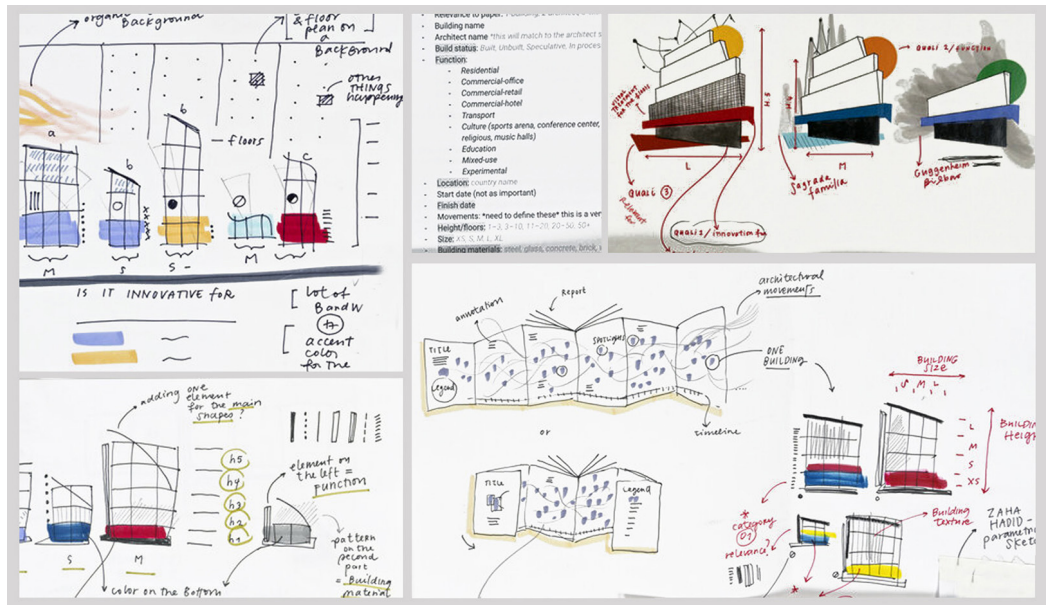 organic
Background
& floor
plan on
a
Background
other
THINGS
happening
a
b
b
floors
c
M
S
S -
M
IS IT INNOVATIVE FOR
lot of
B and W
+
accent
color
for the
Building name
Architect name *this will match to the architect s
Build status: Built, Unbuilt, Speculative, In proces
Function:
Residential
Commercial-office
Commercial-retail
Commercial-hotel
Transport
Culture (sports arena, conference center,
religious, music halls)
Education
Mixed-use
Experimental
Location: country name
Start date (not as important)
Finish date
Movements: *need to define these* this is a ver
Height/floors: 1-3, 3-10, 11-20, 20-50, 50+
Size: XS, S, M, L, XL
Building materials: steel, glass, concrete, brick,
visual
treatment
for the floors
H.S
L
QUALI 3
Relevant
for
QUALI 2/innovation for
M
Sagrada
familia
QUALI 2/FUNCTION
Guggenheim
Bilbao
adding one
element
for the main
shapes?
h5
h4
h3
h2
h1
element on
the left =
function
S
M
color on the Bottom
pattern
on the
second
part
= Building
material
annotation
Report
architectural
movements
TITLE
Legend
SPOTLIGHTS
ONE
BUILDING
timeline
or
TITLE
Legend
BUILDING
SIZE
S M L
L
M
S
XS
BUILDIN
Heigh
*
category
01
relevance?
Building
texture
ZAHA
HADID -
parametri
Sketc
*